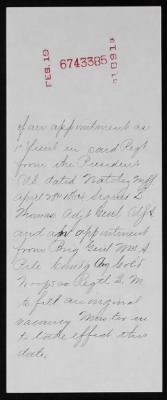 FEB. 19
6743385
1919
of an appointment as
officer in said Regt
from the President
U.S. dated Natchez Miss
April 7th 1864 Signed L
Thomas Adjt Genl U.S.A
and an appointment
from Brig Genl Wm A
Pile Comdg Col'd
Troops as Regtl Q. M
to fill an original
vacancy Muster in
to take effect this
date.